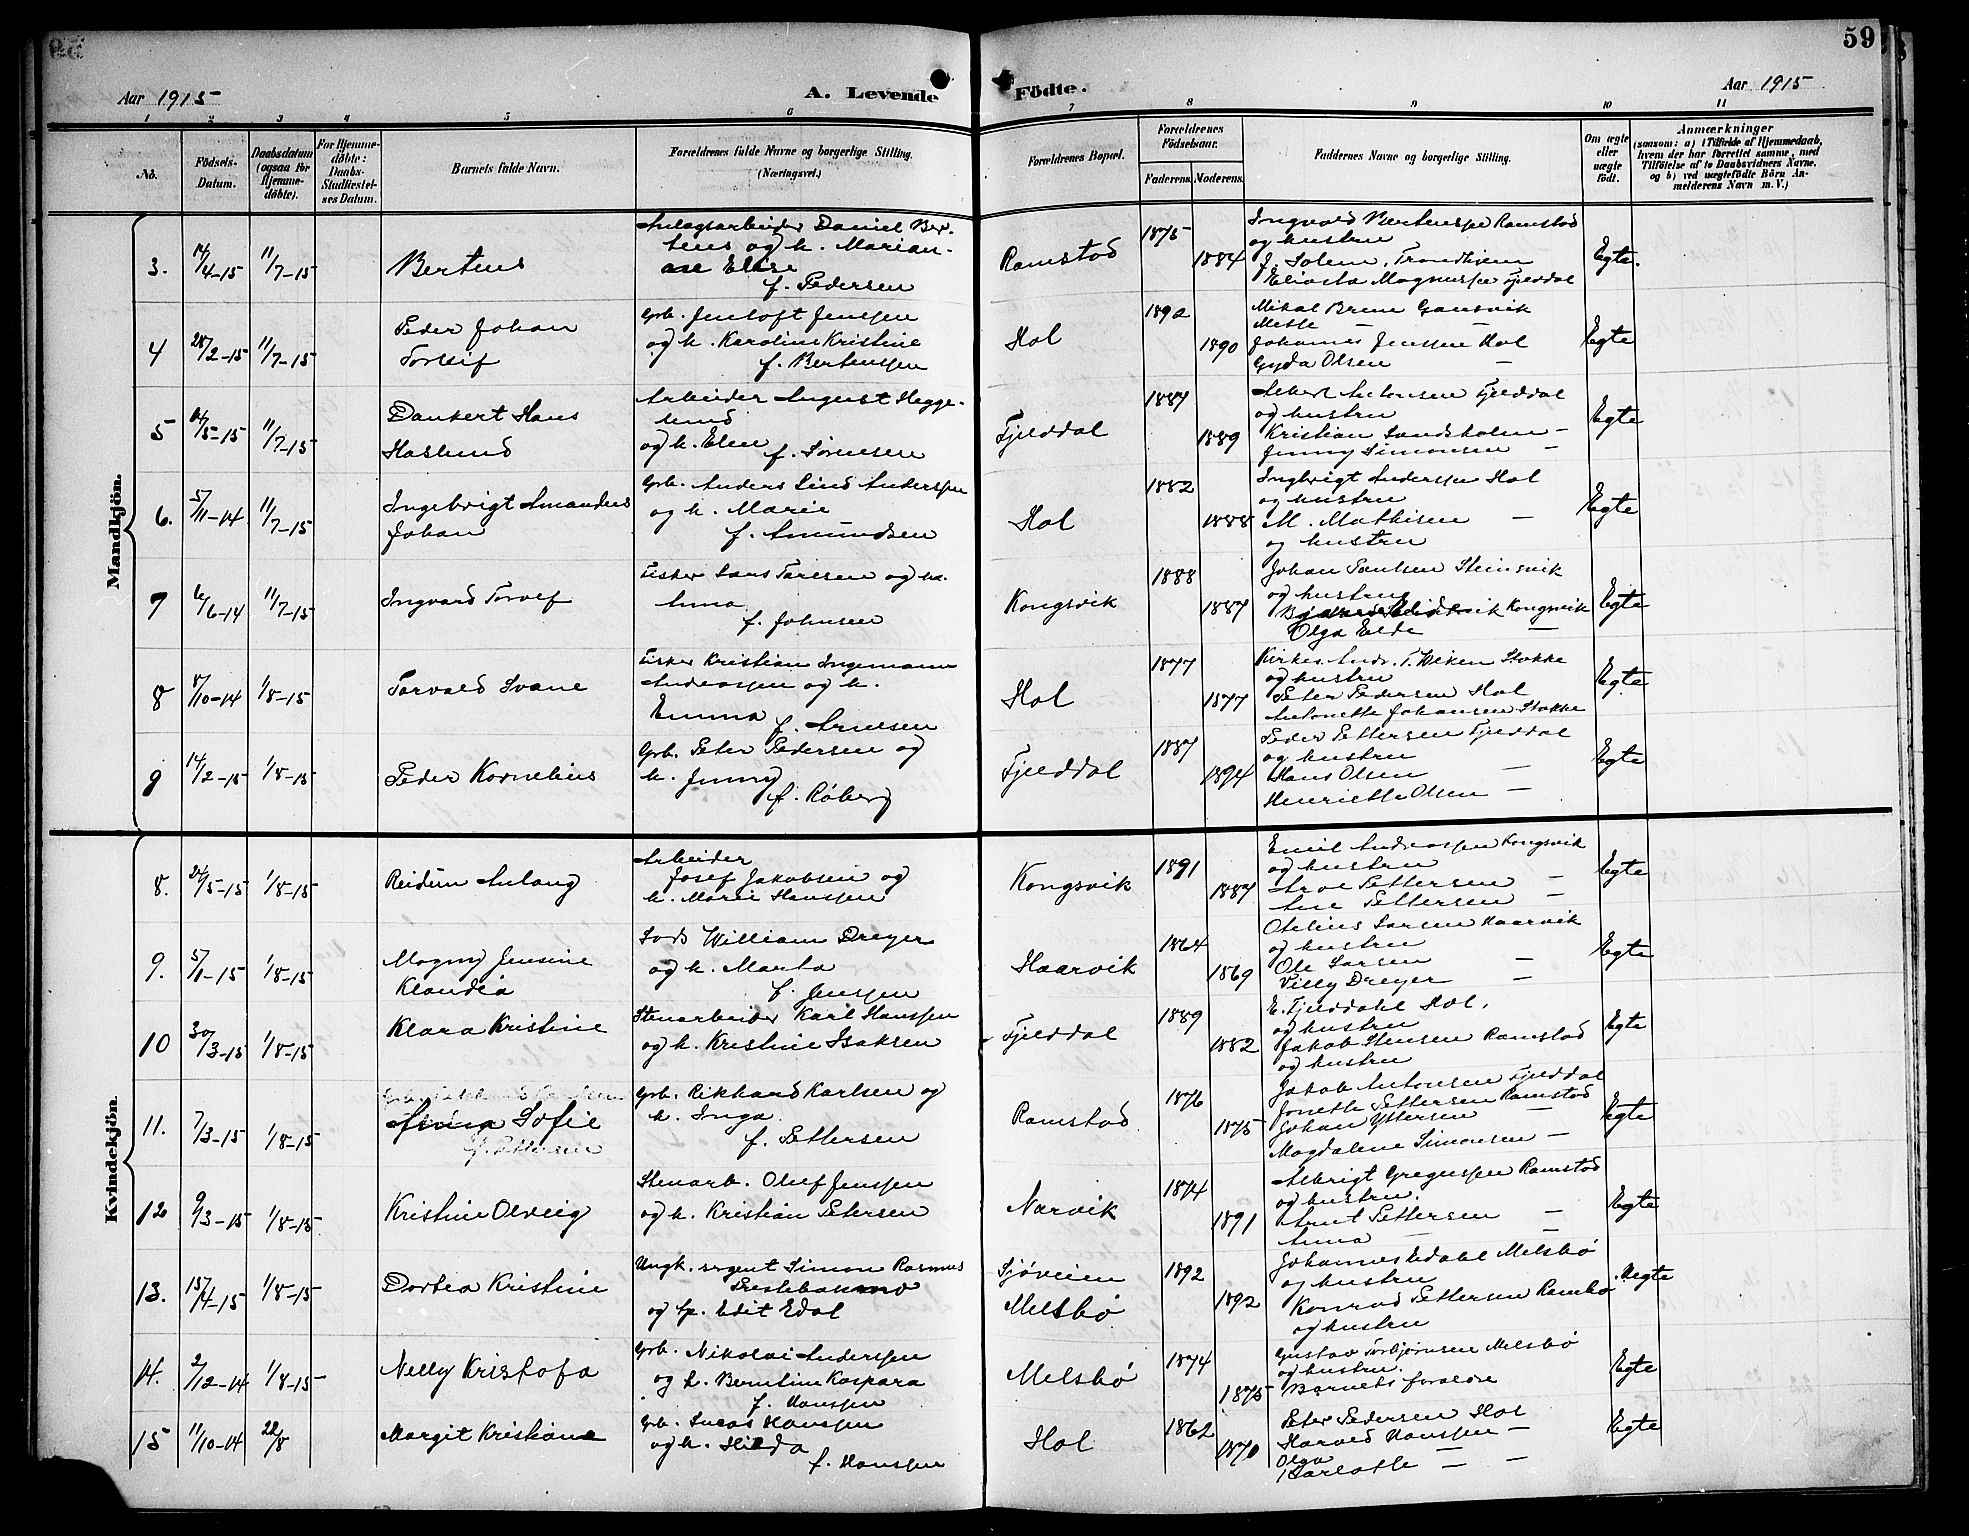 59
Aar 1915
A. Levende
Födte.
Aar 1915
1 2 3 4 5 6 7 8 9 10 11
No.
Födsels-
Datum.
Daabsdatum
(ogsaa for
Hjemme-
döbte).
For Hjemme-
döbte:
Daabs-
Stadfæstel-
ses Datum.
Barnets fulde Navn.
Forældrenes fulde Navne og borgerlige Stilling.
(Næringsvei.)
Forældrenes Bopæl.
Forældrenes
Födselsaar.
Faderens.
Moderens.
Faddernes Navne og borgerlige Stilling.
Om ægte
eller
uægte
födt.
Anmærkninger
(saasom: a) i Tilfælde af Hjemmedaab,
hvem der har forrettet samme, med
Tilföielse af to Daabsvidners Navne,
og b) ved uægtefödte Börn An-
melderens Navn m. V.)
Mandkjön.
3. 14/4-15 11/7-15 Bertens
Anlægsarbeider Daniel Ber-
tens og h. Marian-
ne Elise
f. Pedersen
Ramstad 1875 1884
Ingvald Bertenssen Ramstad
og hustru
J. Solem, Trondhjem
Magnussen Fjelddal
Egte.
4 28/2-15 11/7-15 Peder Johan
Torleif
Grb. Jentoft Jenssen
og h. Karoline Kristine
f. Bertenssen
Hol 1892 1890
Mikal Brun Gausvik
Mette —
Johannes Jenssen Hol
Gyda Olsen —
Egte
5 11/7-15 Dankert Hans
Haslund
Arbeider August Hegge-
lund
og h. Elen f. Sørensen
Fjelddal 1887 1889
Albert Antonsen Fjelddal
og hustru
Kristian Sandsholm —
Jenny Simonsen —
Egte
6. 5/11-14 11/7-15 Ingebrigt Amandus
Johan
Grb. Anders Lind Anderssen
og h. Marie
f. Amundsen
Hol 1882 1888
Ingbrigt Anderssen Hol
og hustru
M. Mathisen —
og hustru
Egte
7 6/6-14 11/7-15 Ingvard Torleif
Fisker Lars Larssen og h.
Anna
f. Johnsen
Kongsvik 1888 1887
Johan Paulsen Steinsvik
og hustru
Kongsvik
Olga Elde —
Egte
8 8/10-14 1/8-15 Torvald Svane
Fisker Kristian Ingemann
Andreassen og h.
Emma f. Arnesen
Hol 1877 1877
Kirkes. Andr. T. Viken Stokke
og hustru
Peter Pedersen Hol
Antonette Johansen Stokke
Egte
9 14/2-15 1/8-15 Peder Kornelius
Grb. Peter Pedersen og
h. Jenny
f. Røberg
Fjelddal 1887 1894
Peder Pettersen Fjelddal
og hustru
Hans Olsen —
Henriette Olsen —
Egte
Kvindekjön.
8. 24/5-15 1/8-15 Reidun Aslaug
Arbeider
Josef Jakobsen og
h. Marie Hanssen
Kongsvik 1891 1887
Emil Andreassen Kongsvik
og hustru
Arve Pettersen —
Ane Pettersen —
Egte
9. 5/1-15 1/8-15 Magny Jensine
Klaudia
Lods William Dreyer
og h. Marta
f. Jenssen
Haarvik 1864 1869
Otelius Larsen Haarvik
og hustru
Ole Larsen —
Villy Dreyer —
Egte
10 30/3-15 1/8-15 Klara Kristine
Stenarbeider Karl Hanssen
og h. Kristine Isaksen
Fjelddal 1889 1882
E. Fjelddahl Hol.
og hustru
Jakob Stensen Ramstad
og hustru
Egte
11. 7/3-15 1/8-15 Anna Sofie
Grb. Rikhard Karlsen og
h. Inga
f. Pettersen
Ramstad 1876 1875
Jakob Antonsen Fjelddal
Jonette Pettersen Ramstad
Johan Yttersen —
Magdalene Simonsen —
Egte
12 9/3-15 1/8-15 Kristine Olveig
Stenarb. Oluf Jenssen
og h. Kristian Petersen
Narvik 1874 1891
Albrigt Gregussen Ramstad
og hustru.
Arnt Pettersen —
Anna — —
Egte
13. 15/4-15 1/8-15 Dortea Kristine
Ungk. sergent Simon Rasmus
Prestebakmo
og Ip. Edit Edal
Sjøveien
Melsbø 1892 1892
Johannes Edahl Melsbø
og hustru
Konrad Pettersen Rambo
og hustru
Uegte
14. 2/12-14 1/8-15 Nelly Kristofa
Grb. Nikolai Anderssen
og h. Berntine Kaspara
f. Hanssen
Melsbø 1874 1875
Gustav Torbjørnsen Melsbø
og hustru.
Barnets forældre
Egte
15 11/10-14 22/8 Margit Kristiane
Grb. Lucas Hanssen
og h. Hilda
f. Hanssen
Hol 1862 1870
Peter Pedersen Hol
Harald Hanssen —
Olga
Karlotte — —
Egte